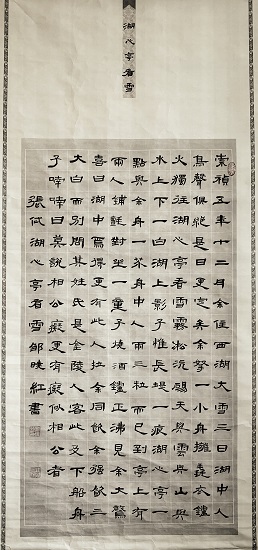 湖心亭看雪
崇禎五年十二月余住西湖大雪三日湖中人
鳥聲俱絕是日更定矣余拏一小舟擁毳衣爐
火獨往湖心亭看雪霧凇沆碭天與雲與山與
水上下一白湖上影子惟長堤一痕湖心亭一
點與余舟一芥舟中人兩三粒而已到亭上有
兩人鋪氈對坐一童子燒酒鑪正沸見余大驚
喜曰湖中焉得更有此人拉余同飲余強飲三
大白而別問其姓氏是金陵人客此及下船舟
子喃喃曰莫說相公癡更有癡似相公者
張岱湖心亭看雪鄒曉紅書